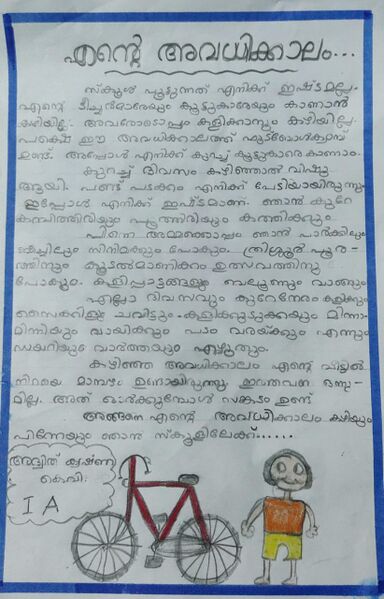 എന്റെ അവധിക്കാലം...
സ്കൂൾ പൂട്ടുന്നത് എനിക്ക് ഇഷ്ടമല്ല.
എന്റെ ടീച്ചർമാരേയും കൂട്ടുകാരേയും കാണാൻ
കഴിയില്ല. അവരോടൊപ്പം കളിക്കാനും കഴിയില്ല.
പക്ഷെ ഈ അവധിക്കാലത്ത് ഫുട്ബോൾക്യാമ്പ്
ഉണ്ട്. അപ്പോൾ എനിക്ക് കുറച്ച് കൂട്ടുകാരെ കാണാം.
കുറച്ച് ദിവസം കഴിഞ്ഞാൽ വിഷു
ആയി. പണ്ട് പടക്കം എനിക്ക് പേടിയായിരുന്നു
ഇപ്പോൾ എനിക്ക് ഇഷ്ടമാണ്. ഞാൻ കുറേ
കമ്പിത്തിരിയും പൂത്തിരിയും കത്തിക്കും
പിന്നെ അമ്മക്കൊപ്പം ഞാൻ പാർക്കിലും
ബീച്ചിലും സിനിമക്കും പോകും. ത്രിശ്ശൂർ പൂര-
ത്തിനും കൂടൽമാണിക്കം ഉത്സവത്തിനു
പോകും. കളിപ്പാട്ടങ്ങളും ബലൂണും വാങ്ങും
എല്ലാ ദിവസവും കുറേനേരം കളിക്കും
സൈക്കിളും ചവിട്ടും. കളിക്കുടുക്കയും മിന്നാ-
മിന്നിയും വായിക്കും പടം വരയ്ക്കും എന്നും
ഡയറിയും വാർത്തയും എഴുതും.
കഴിഞ്ഞ അവധിക്കാലം എന്റെ വീട്ടിൽ
നിറയെ മാമ്പഴം ഉണ്ടായിരുന്നു. ഇത്തവണ ഒന്നു-
മില്ല. അത് ഓർക്കുമ്പോൾ സങ്കടം ഉണ്ട്
അങ്ങനെ എന്റെ അവധിക്കാലം കഴിയും
പിന്നേയും ഞാൻ സ്കൂളിലേക്ക്......
അദ്വിത് കൃഷ്ണ
കെ.വി.
I A